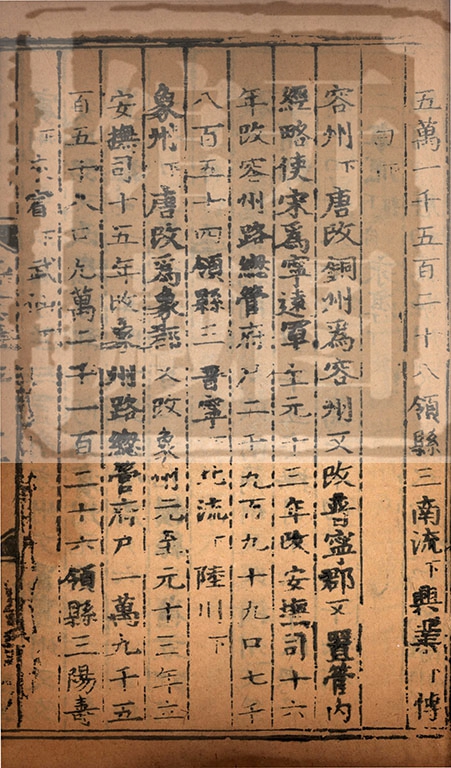 五萬一千五百二十八領縣三南流下興業下博
白下
容州下唐改銅州爲容州又改普寧郡又置管內
經略使宋爲寧遠軍至元十三年改安撫司十六
年改容州路總管府戶二千九百九十九口七千
八百五十四領縣三普寧下北流下陸川下
象州下唐改爲象郡又改象州元至元十三年立
安撫司十五年改象州路總管府戶一萬九千五
百五十八口九萬二千一百二十六領縣三陽壽
下來賓下武仙下